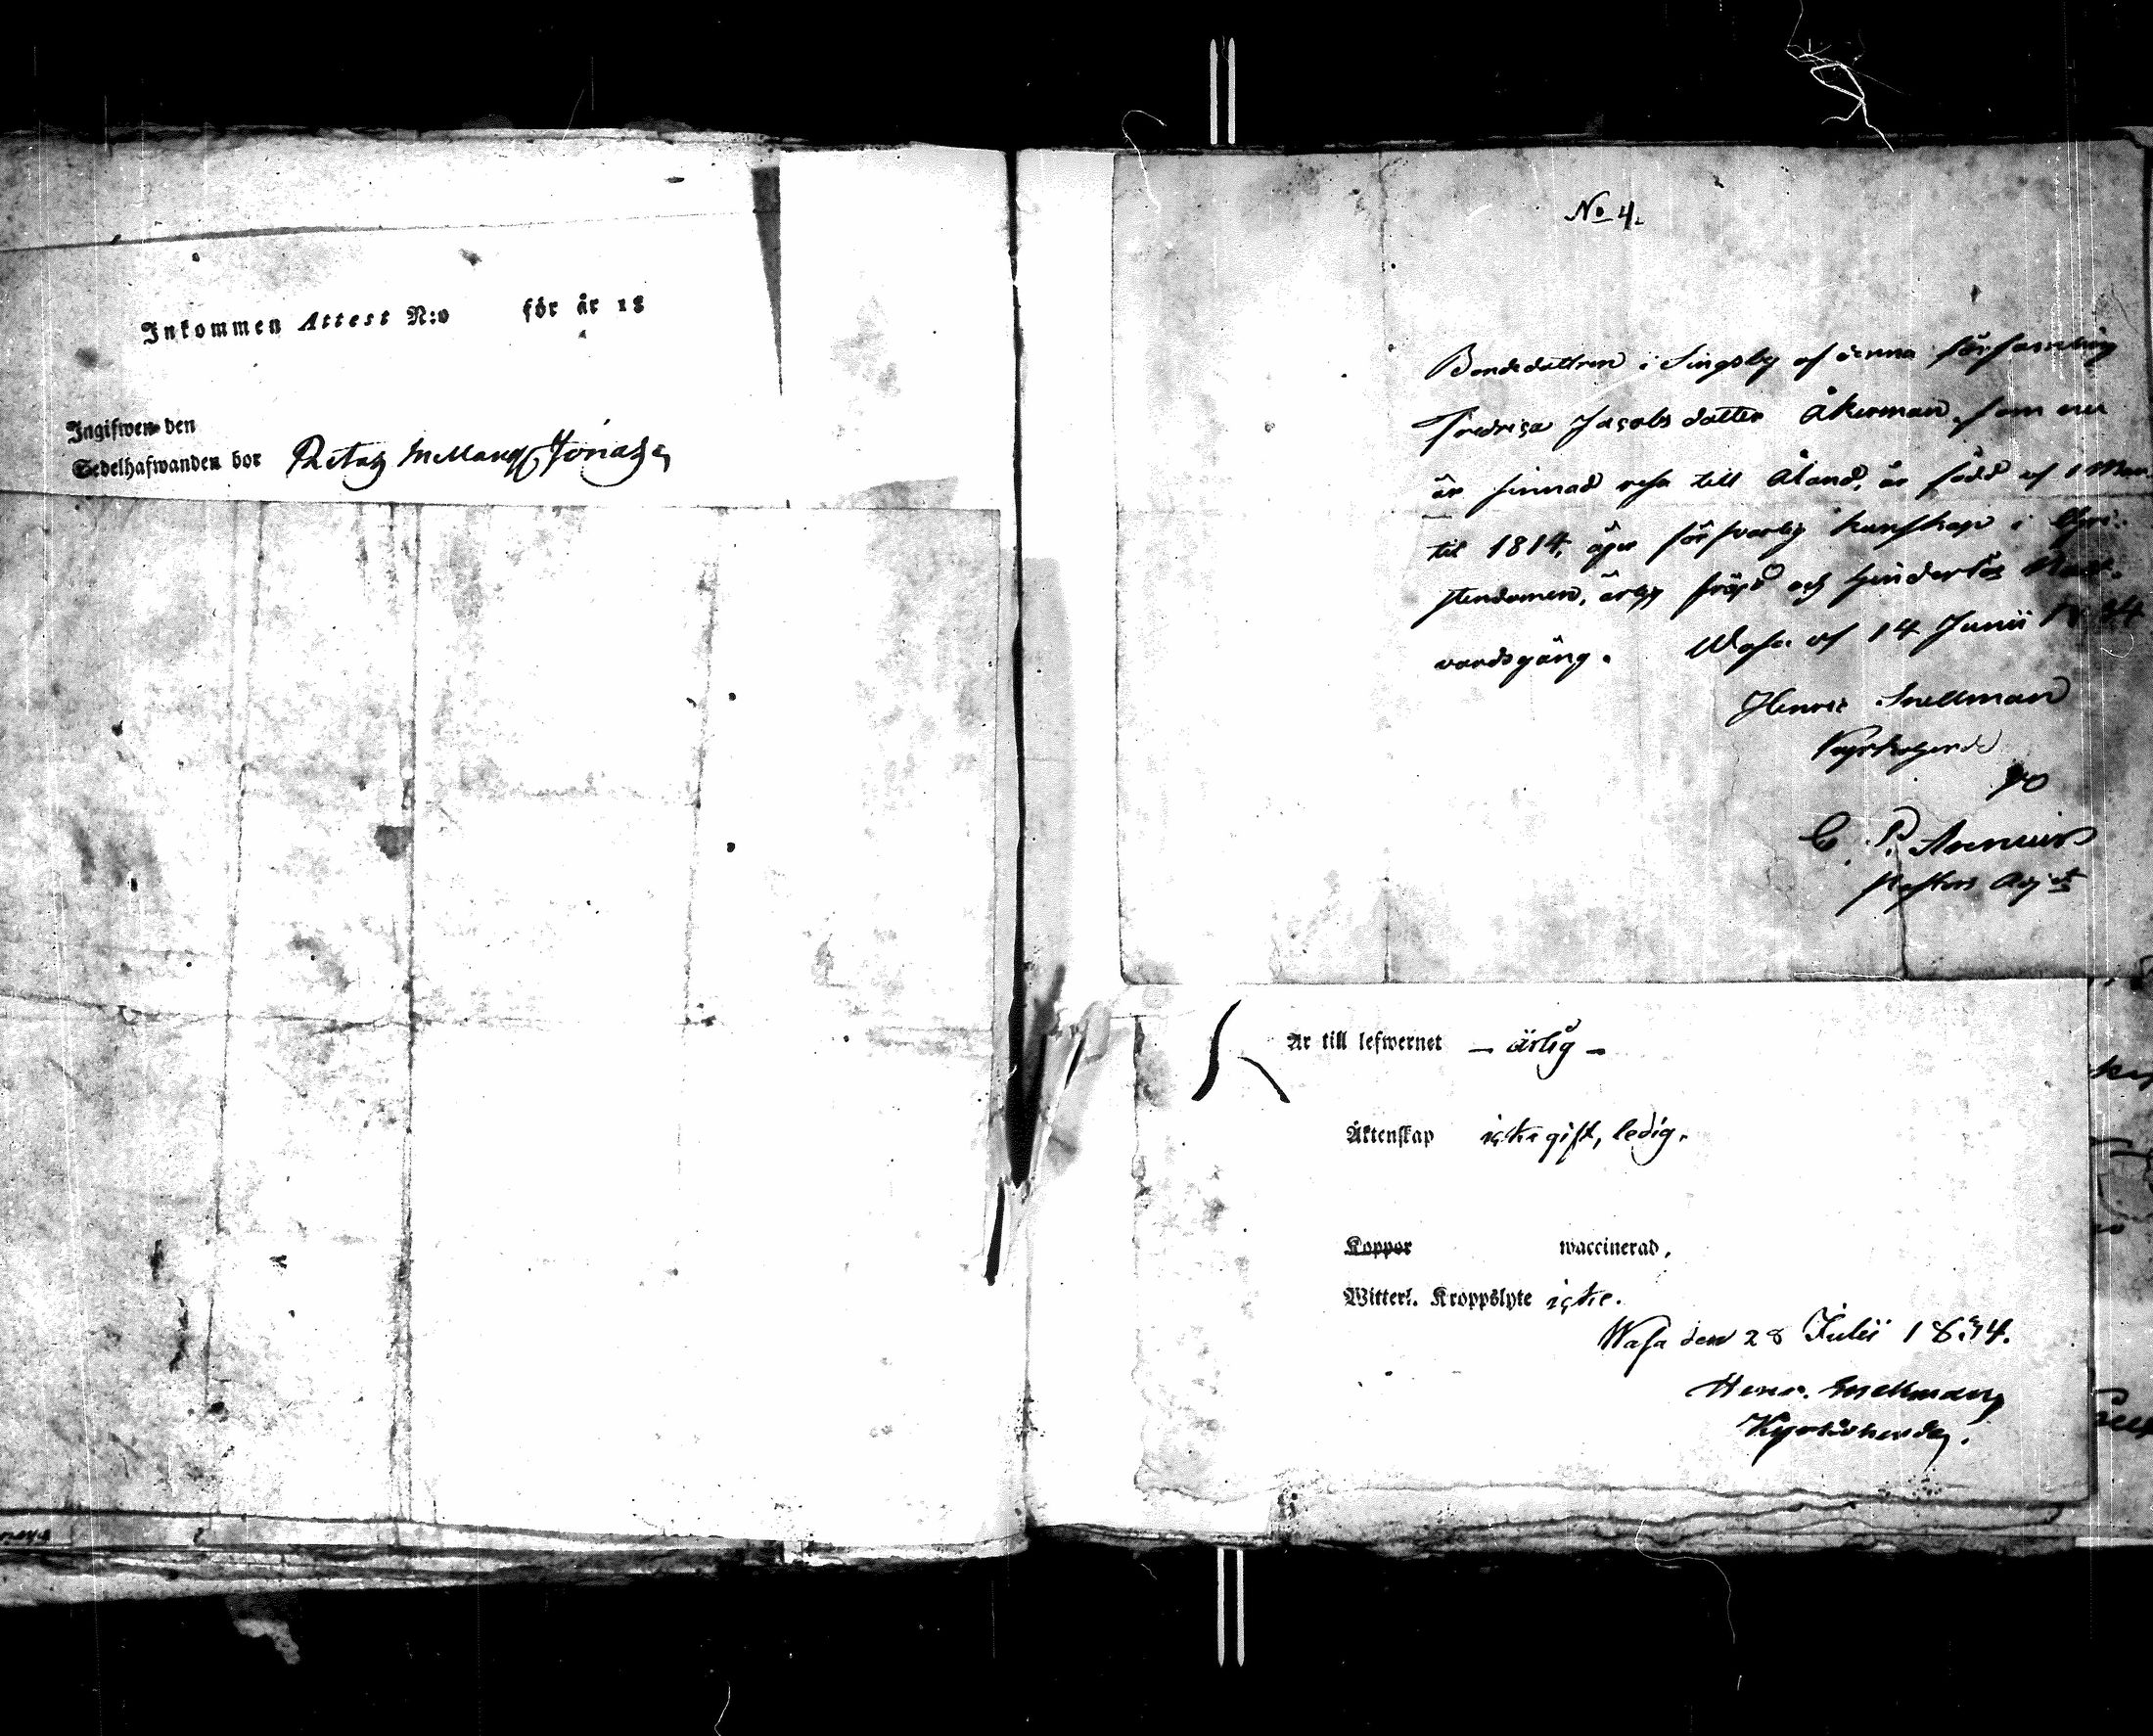 Inkommen Attest N:o för år 18
Ingifwen den
Sedelhafwanden bor
No 4.
Bondedottren i Singsby af denna församling
Fredrica Jacobsdotter Åkerman, som nu
är sinnad resa till Åland, är född af 1
til 1814, äger försvarlig kunskap i Chri-
stendomen, ärlig fräjd och hinderlös Natt-
vardsgång. Wasa af 14 Junii 1834
Henric Snellman
Kyrkoherde
C. P.
Pastors Adj:t
Är till lefwernet – ärlig –
Äktenskap icke gift, ledig.
Koppor waccinerad.
Witterl. Kroppslyte icke.
Wasa den 28 Julii 1834.
Henr. Snellman
Kyrkoherde.